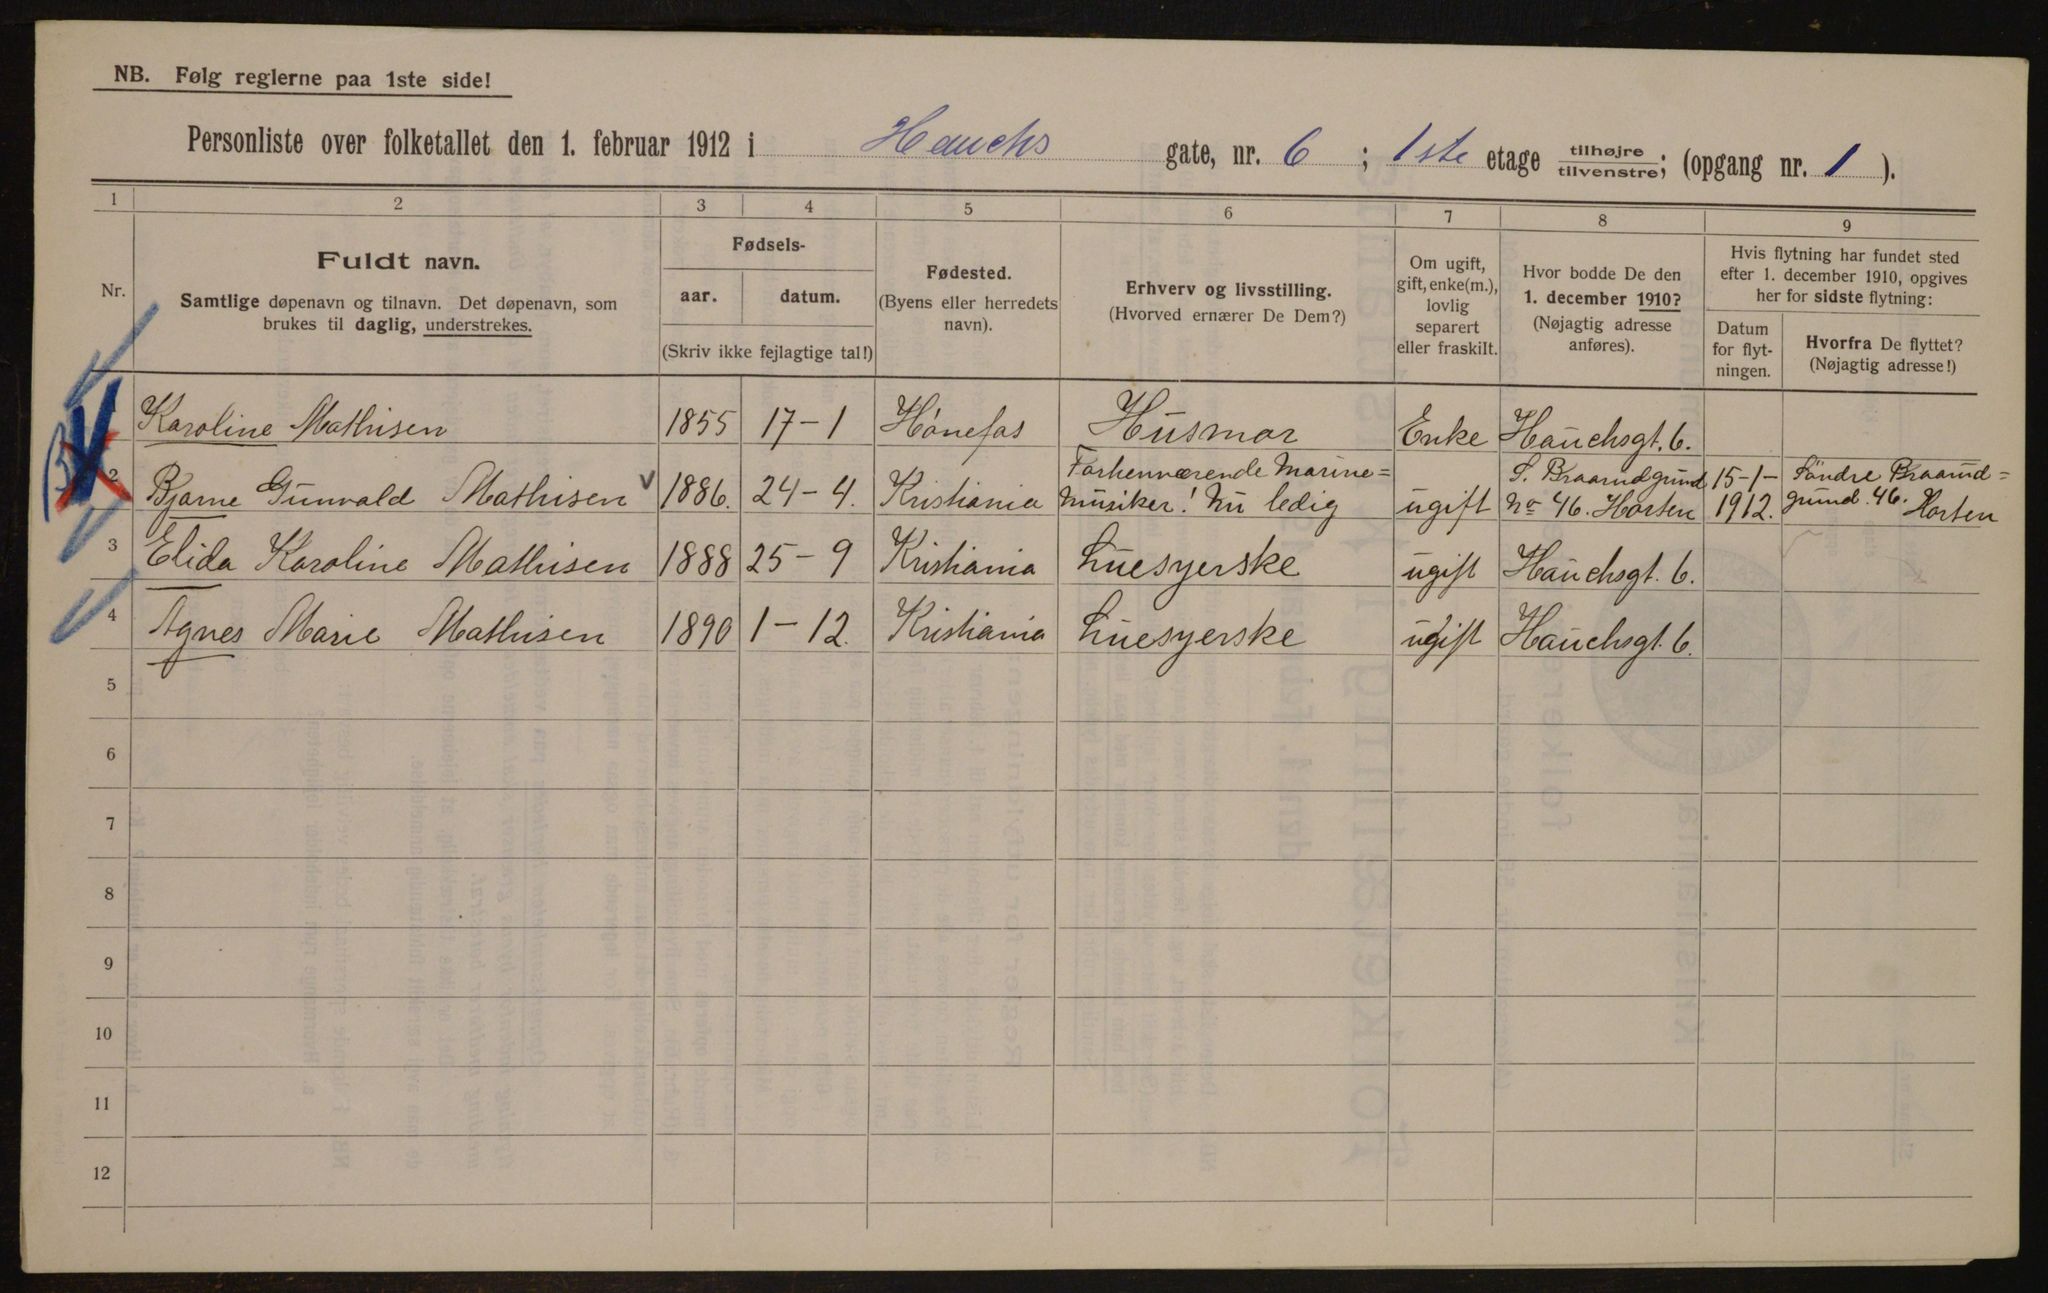 NB. Følg reglerne paa 1ste side!
Personliste over folketallet den 1. februar 1912 i Hauchs gate, nr. 6; 1ste etage tilhøjre/tilvenstre; (opgang nr. 1).
1 2 3 4 5 6 7 8 9
Nr.
Fuldt navn.
Samtlige døpenavn og tilnavn. Det døpenavn, som
brukes til daglig, understrekes.
Fødsels-
aar. datum.
(Skriv ikke fejlagtige tal!)
Fødested.
(Byens eller herredets
navn).
Erhverv og livsstilling.
(Hvorved ernærer De Dem?)
Om ugift,
gift, enke(m.),
lovlig
separert
eller fraskilt.
Hvor bodde De den
1. december 1910?
(Nøjagtig adresse
anføres).
Hvis flytning har fundet sted
efter 1. december 1910, opgives
her for sidste flytning:
Datum
for flyt-
ningen.
Hvorfra De flyttet?
(Nøjagtig adresse!)
Karoline Mathisen 1855 17-1 Hónefos Husmor Enke Hauchsgt. 6.
2 Bjarne Gunvald Mathisen 1886. 24-4. Kristiania Forhenværende Marine=
musiker! Nu ledig ugift S. Braarudgrund
No 46. Horten 15-1-
1912. Söndre Braarud=
grund. 46. Horten
3 Elida Karoline Mathisen 1888 25-9 Kristiania Luesyerske ugift Hauchsgt. 6.
4 Agnes Marie Mathisen 1890 1-12. Kristiania Luesyerske ugift Hauchsgt. 6.
5
6
7
8
9
10
11
12